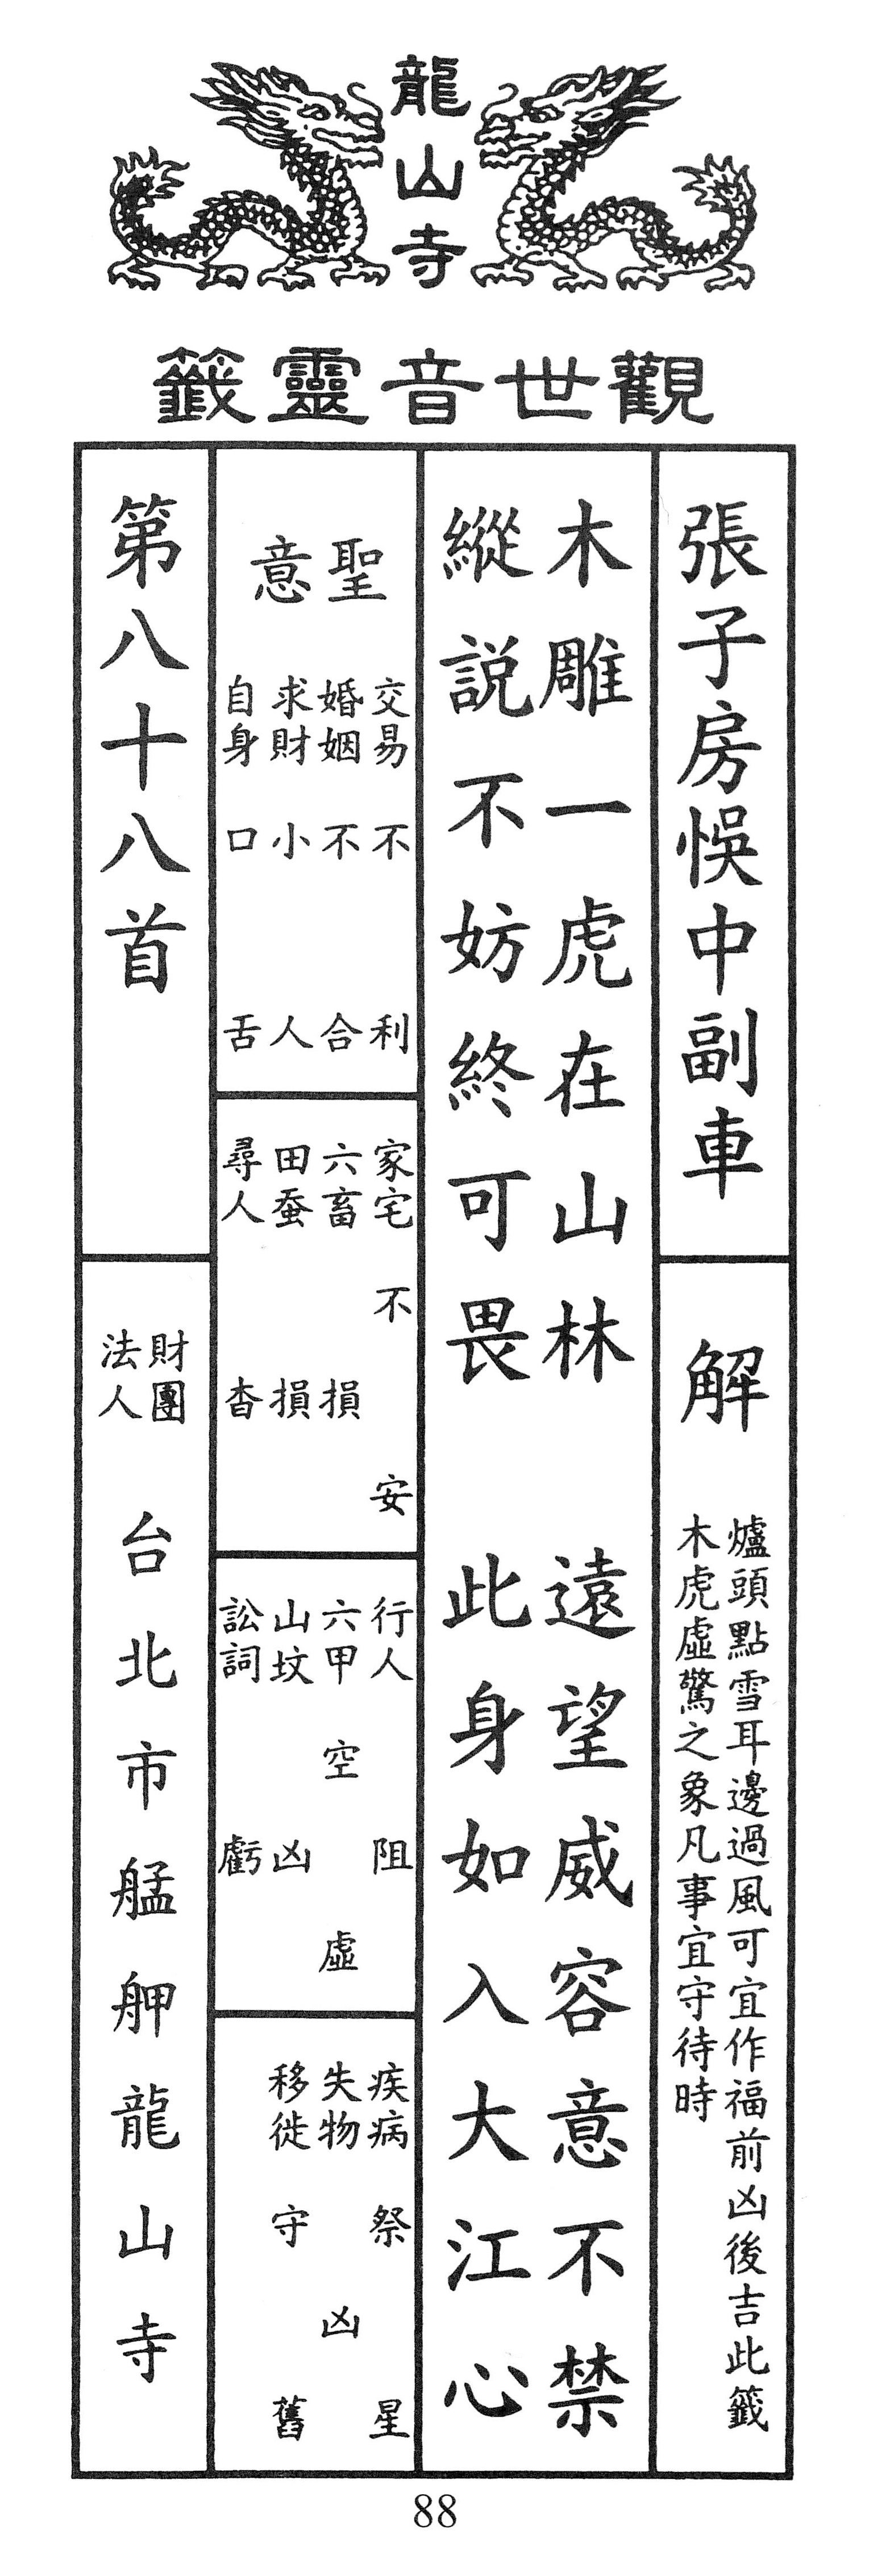 龍山寺
觀世音靈籤
張子房悞中副車
解
爐頭點雪耳邊過風可宜作福前凶後吉此籤
木虎虛驚之象凡事宜守待時
木雕一虎在山林 遠望威容意不禁
縱說不妨終可畏 此身如入大江心
聖意
交易 不利
婚姻 不合
求財 小人
自身 口舌
家宅 不安
六畜 損
田蚕 損
尋人 杳
行人 阻
六甲 空虛
山坟 凶
訟詞 虧
疾病 祭星
失物 凶
移徙 守舊
第八十八首
財團法人
台北市艋舺龍山寺
88